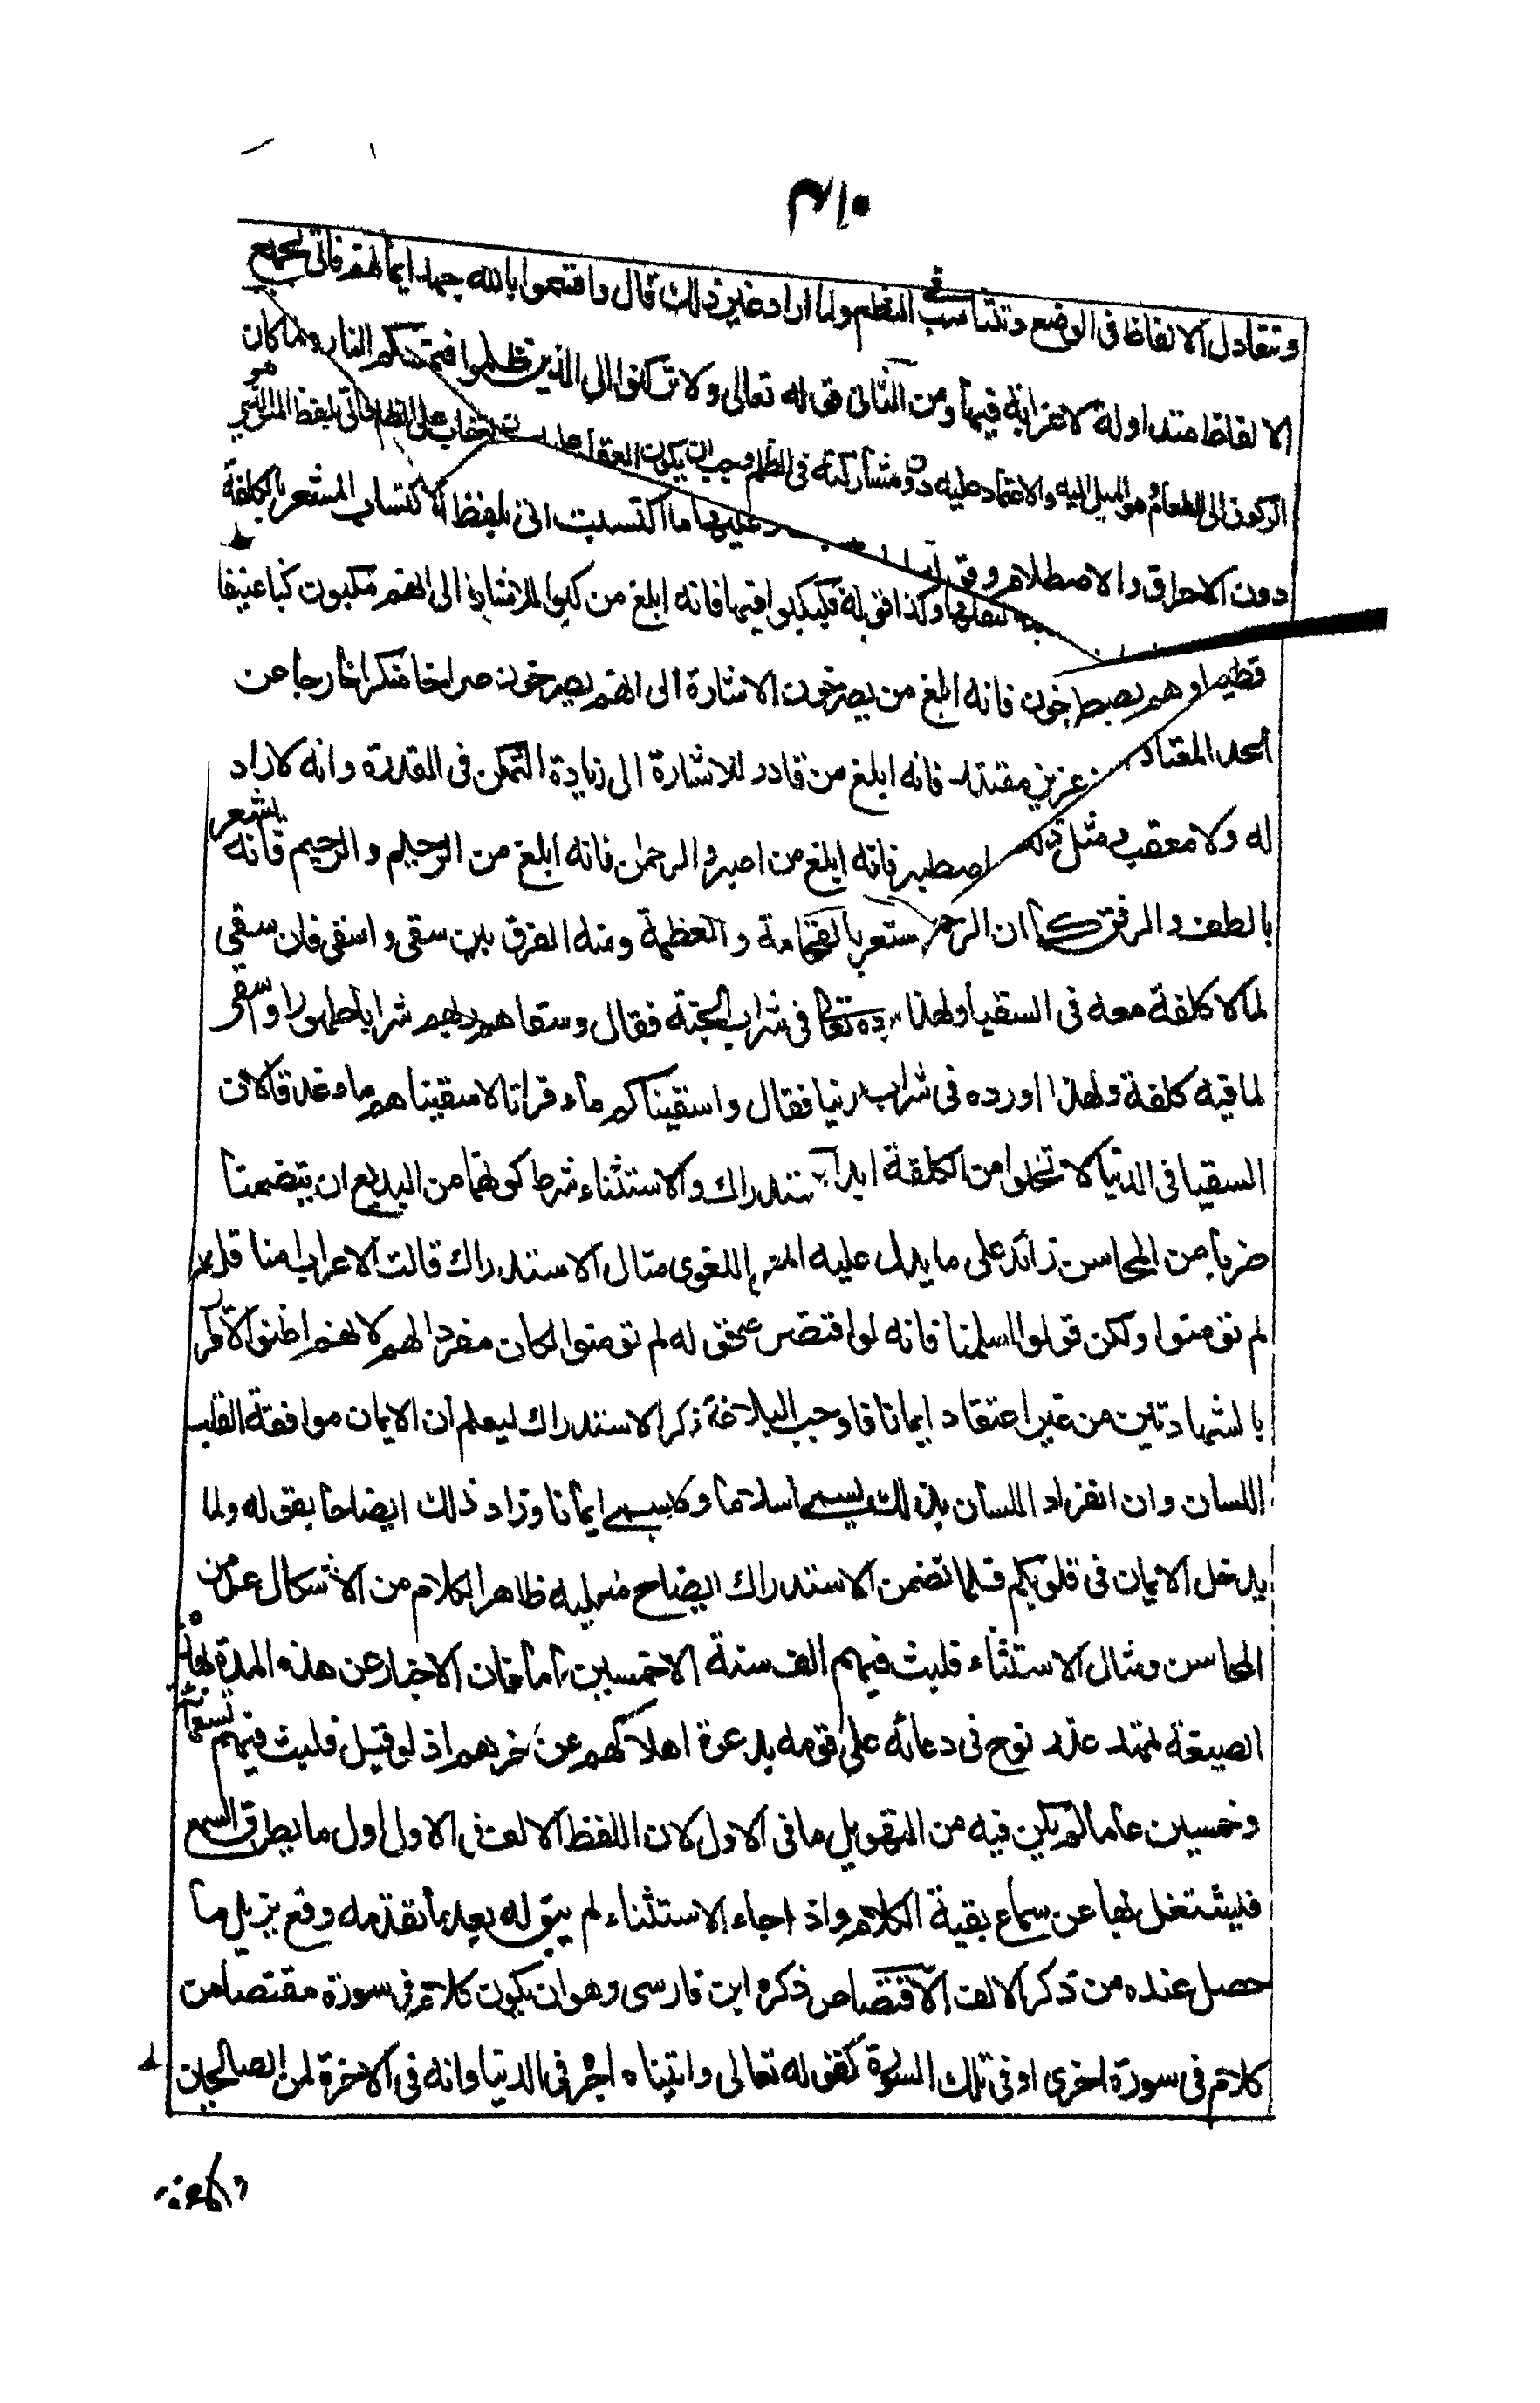 وتتعادل الالفاظ فى الوضع وتتناسب فى النظم ولما اراد غير ذلك قال واقسموا بالله جهد ايمانهم فاتى بجميع
الالفاظ متداولة لا غرابة فيها ومن الثانى قوله تعالى ولا تركنوا الى الذين ظلموا فتمسكم النار ولما كان
الركون الى الظالم وهو الميل اليه والاعتماد عليه دون مشاركته فى الظلم وجب ان يكون العقاب عليه دون العقاب على الظلم فاتى بلفظ المس الذى هو
دون الاحراق والاصطلام وقوله عليها ما اكتسبت اتى بلفظ الاكتساب المشعر بالكلفة
لثقلها وكذا قوله فكبكبوا فيها فانه ابلغ من كبوا للاشارة الى انهم يكبون كبا عنيفا
فظيعا وهم يصطرخون فانه ابلغ من يصرخون الاشارة الى انهم يصرخون صراخا منكرا خارجا عن
الحد المعتاد عزيز مقتدر فانه ابلغ من قادر للاشارة الى زيادة التمكن فى القدرة وانه لا راد
له ولا معقب ومثل ذلك اصطبر فانه ابلغ من اصبر والرحمن فانه ابلغ من الرحيم والرحيم فانه يشعر
بالطف والرفق كما ان الرحمن مشعر بالفخامة والعظمة ومنه الفرق بين سقى واسقى فان سقى
لما لا كلفة معه فى السقيا ولهذا اورده تعالى فى شراب الجنة فقال وسقاهم ربهم شرابا طهورا واسقى
لما فيه كلفة ولهذا اورده فى شراب الدنيا فقال واسقيناكم ماء فراتا لاسقيناهم ماء غدقا لان
السقيا فى الدنيا لا تخلوا من الكلفة ابدا الاستدراك والاستثناء شرط كونهما من البديع ان يتضمنا
ضربا من المحاسن زائد على ما يدل عليه المعنى اللغوى مثال الاستدراك قالت الاعراب امنا قل
لم تؤمنوا ولكن قولوا اسلمنا فانه لو اقتصر على قوله لم تؤمنوا لكان منفرا لهم لانهم اظنوا الاقرار
بالشهادتين من غير اعتقاد ايمانا فاوجب البلاغة ذكر الاستدراك ليعلم ان الايمان موافقة القلب
اللسان وان انفراد اللسان بذلك يسمى اسلاما ولا يسمى ايمانا وزاد ذلك ايضاحا بقوله ولما
يدخل الايمان فى قلوبكم فلما تضمن الاستدراك ايضاح ما عليه ظاهر الكلام من الاشكال عد من
المحاسن ومثال الاستثناء فلبث فيهم الف سنة الا خمسين عاما فان الاخبار عن هذه المدة بهذه
الصيغة تمهد عذر نوح فى دعائه على قومه بدعوة اهلاكهم عن اخرهم اذ لو قيل فلبث فيهم تسعمائة
وخمسين عاما لم يكن فيه من التهويل ما فى الاول لان اللفظ الالف فى الاول اول ما يطرق السمع
فليشتغل بها عن سماع بقية الكلام واذا جاء الاستثناء لم يبق له بعد ما تقدمه وقع يزيل ما
حصل عنده من ذكر الالف الاقتصاص ذكره ابن فارسى وهو ان يكون كلام فى سورة مقتصا من
كلام فى سورة اخرى او فى تلك السورة كقوله تعالى واتيناه اجره فى الدنيا وانه فى الاخرة لمن الصالحين
والاخرة